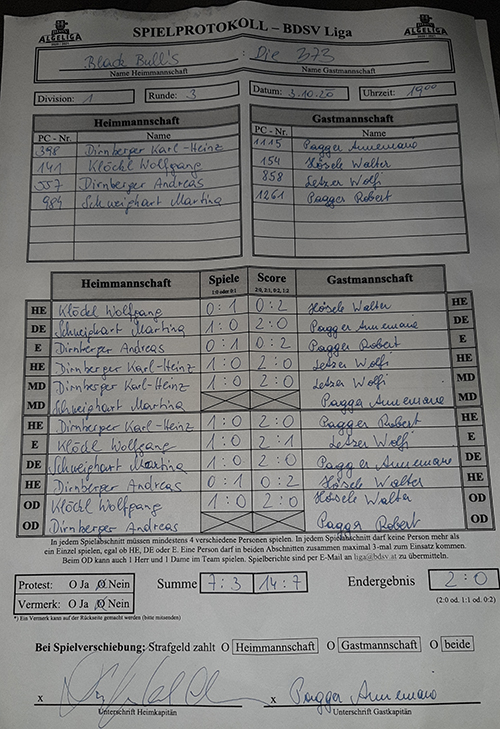 ALGELIGA
SPIELPROTOKOLL – BDSV Liga
ALGELIGA
Black Bull's : Die 373
Name Heimmannschaft Name Gastmannschaft
Division: 1 Runde: 3 Datum: 3.10.20 Uhrzeit: 19 00
Heimmannschaft Gastmannschaft
PC - Nr. Name PC - Nr. Name
398 Dirnberger Karl-Heinz 1115 Pagger Annemarie
141 Klöckl Wolfgang 154 Hösele Walter
557 Dirnberger Andreas 858 Letzer Wolfi
984 Schweighart Martina 1261 Pagger Robert
Heimmannschaft Spiele Score Gastmannschaft
1:0 or 0:1 2:0, 2:1, 0:2, 1:2
HE Klöckl Wolfgang 0:1 0:2 Hösele Walter HE
DE Schweighart Martina 1:0 2:0 Pagger Annemarie DE
E Dirnberger Andreas 0:1 0:2 Pagger Robert E
HE Dirnberger Karl-Heinz 1:0 2:0 Letzer Wolfi HE
MD Dirnberger Karl-Heinz 1:0 2:0 Letzer Wolfi MD
MD Schweighart Martina Pagger Annemarie MD
HE Dirnberger Karl-Heinz 1:0 2:0 Pagger Robert HE
E Klöckl Wolfgang 1:0 2:1 Letzer Wolfi E
DE Schweighart Martina 1:0 2:0 Pagger Annemarie DE
HE Dirnberger Andreas 0:1 0:2 Hösele Walter HE
OD Klöckl Wolfgang 1:0 2:0 Hösele Walter OD
OD Dirnberger Andreas Pagger Robert OD
In jedem Spielabschnitt müssen mindestens 4 verschiedene Personen spielen. In jedem Spielabschnitt darf keine Person mehr als
ein Einzel spielen, egal ob HE, DE oder E. Eine Person darf in beiden Abschnitten zusammen maximal 3-mal zum Einsatz kommen.
Beim OD kann auch 1 Herr und 1 Dame im Team spielen. Spielberichte sind per E-Mail an liga@bdsv.at zu übermitteln.
Protest: O Ja O Nein Summe 7:3 14:7 Endergebnis 2:0
Vermerk: O Ja O Nein (2:0 od. 1:1 od. 0:2)
*) Ein Vermerk kann auf der Rückseite gemacht werden (bitte mitsenden)
Bei Spielverschiebung: Strafgeld zahlt O Heimmannschaft O Gastmannschaft O beide
x x Pagger Annemarie
Unterschrift Heimkapitän Unterschrift Gastkapitän